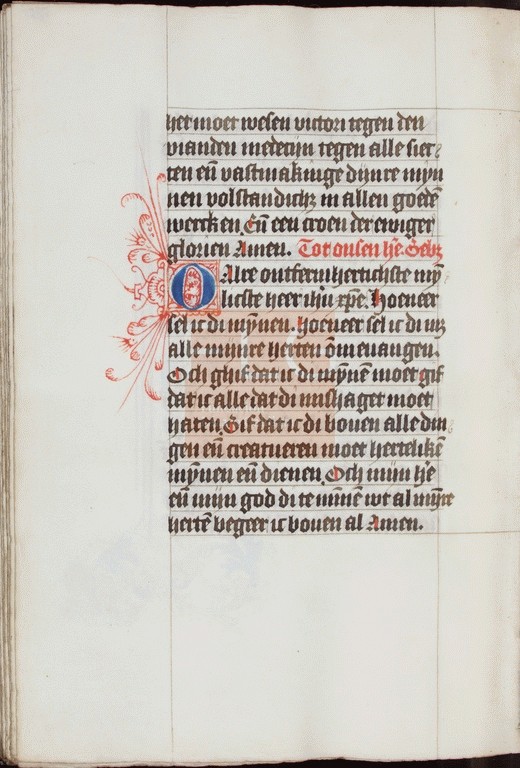 het moet wesen victori tegen den
vianden medecijn tegen alle siec
ten eñ vastmakinge dijnre mÿn
nen volstandich; in allen goedẽ
wercken. Eñ een croen der ewiger
glorien Amen. Tot onsen hẽ. Gebz
O Alre ontfermhertichste mÿ̃
licste heer ihũ xp̃e. Hoeneer
sel ic di mÿnen. hoeneer sel ic di in
alle mijnre herten om̃euangen.
Och ghif dat ic di mÿnẽ moet gif
dat ic alle dat di mishaget moet
haten. Gif dat ic di bouen alle din
gen eñ creatueren moet hertelikẽ
mÿnen eñ dienen. Och mijn hẽ
eñ mijn god di te mĩnẽ wt al mÿ̃re
hertẽ begeer ic bouen al Amen.